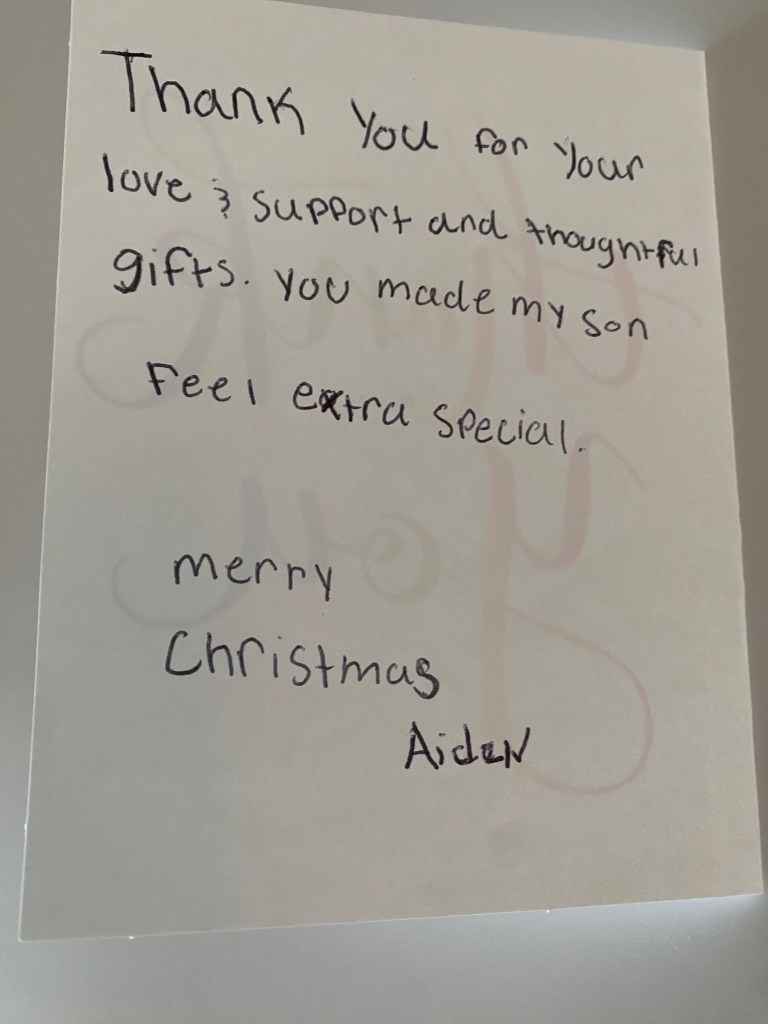 Thank you for your
love & support and thoughtful
gifts. you made my son
Feel extra special.
merry
Christmas
Aiden